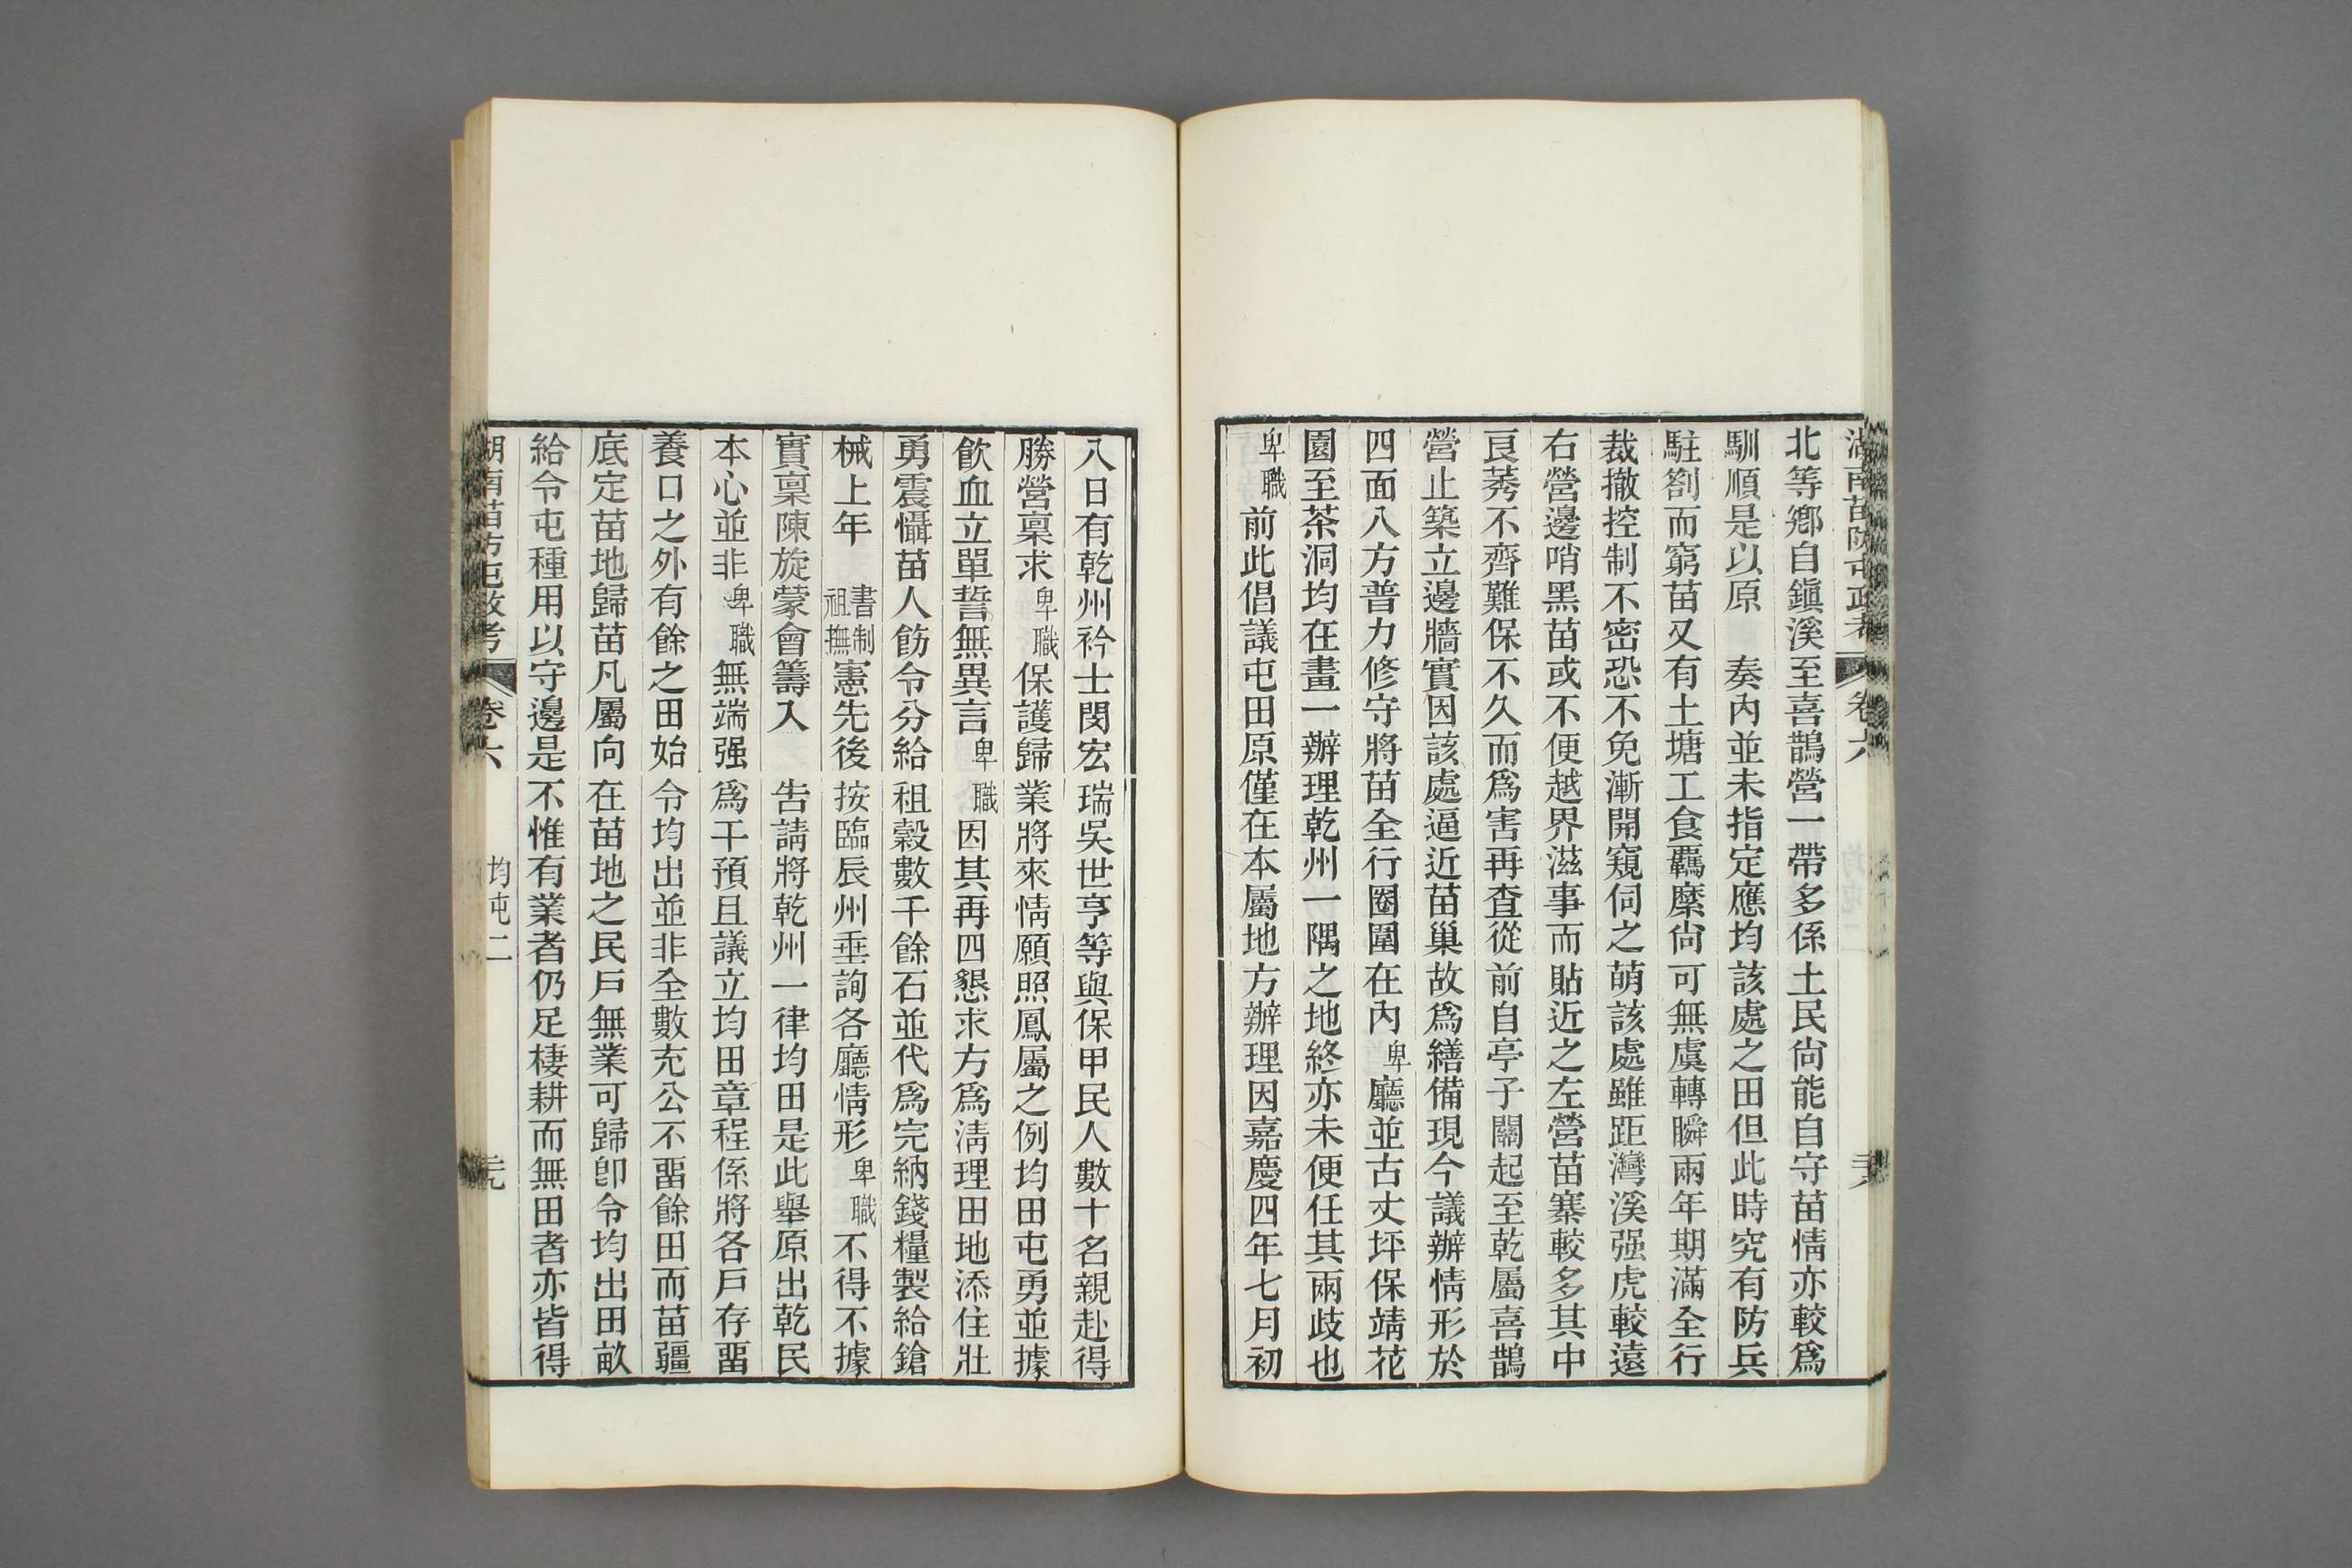 湖南苗防屯政考 卷六 芺
北等鄉自鎭溪至喜鵲營一帶多係土民尙能自守苗情亦較爲
馴順是以原 奏內並未指定應均該處之田但此時究有防兵
駐劄而窮苗又有土塘工食羈縻尙可無虞轉瞬兩年期滿全行
裁撤控制不密恐不免漸開窺伺之萌該處雖距灣溪强虎較遠
右營邊哨黑苗或不便越界滋事而貼近之左營苗寨較多其中
良莠不齊難保不久而爲害再查從前自亭子關起至乾屬喜鵲
營止築立邊牆實因該處逼近苗巢故爲繕備現今議辦情形於
四面八方普力修守將苗全行圈圍在內卑廳並古丈坪保靖花
園至茶洞均在畫一辦理乾州一隅之地終亦未便任其兩歧也
卑職前此倡議屯田原僅在本屬地方辦理因嘉慶四年七月初
八日有乾州衿士閔宏瑞吳世亨等與保甲民人數十名親赴得
勝營稟求卑職保護歸業將來情願照鳳屬之例均田屯勇並據
飮血立單誓無異言卑職因其再四懇求方爲淸理田地添住壯
勇震懾苗人飭令分給租穀數千餘石並代爲完納錢糧製給鎗
械上年 書制祖撫憲先後按臨辰州垂詢各廳情形卑職不得不據
實稟陳旋蒙會籌入 告請將乾州一律均田是此舉原出乾民
本心並非卑職無端强爲干預且議立均田章程係將各戶存畱
養口之外有餘之田始令均出並非全數充公不畱餘田而苗疆
底定苗地歸苗凡屬向在苗地之民戶無業可歸卽令均出田畝
給令屯種用以守邊是不惟有業者仍足棲耕而無田者亦皆得
湖南苗防屯政考 卷六 均屯二